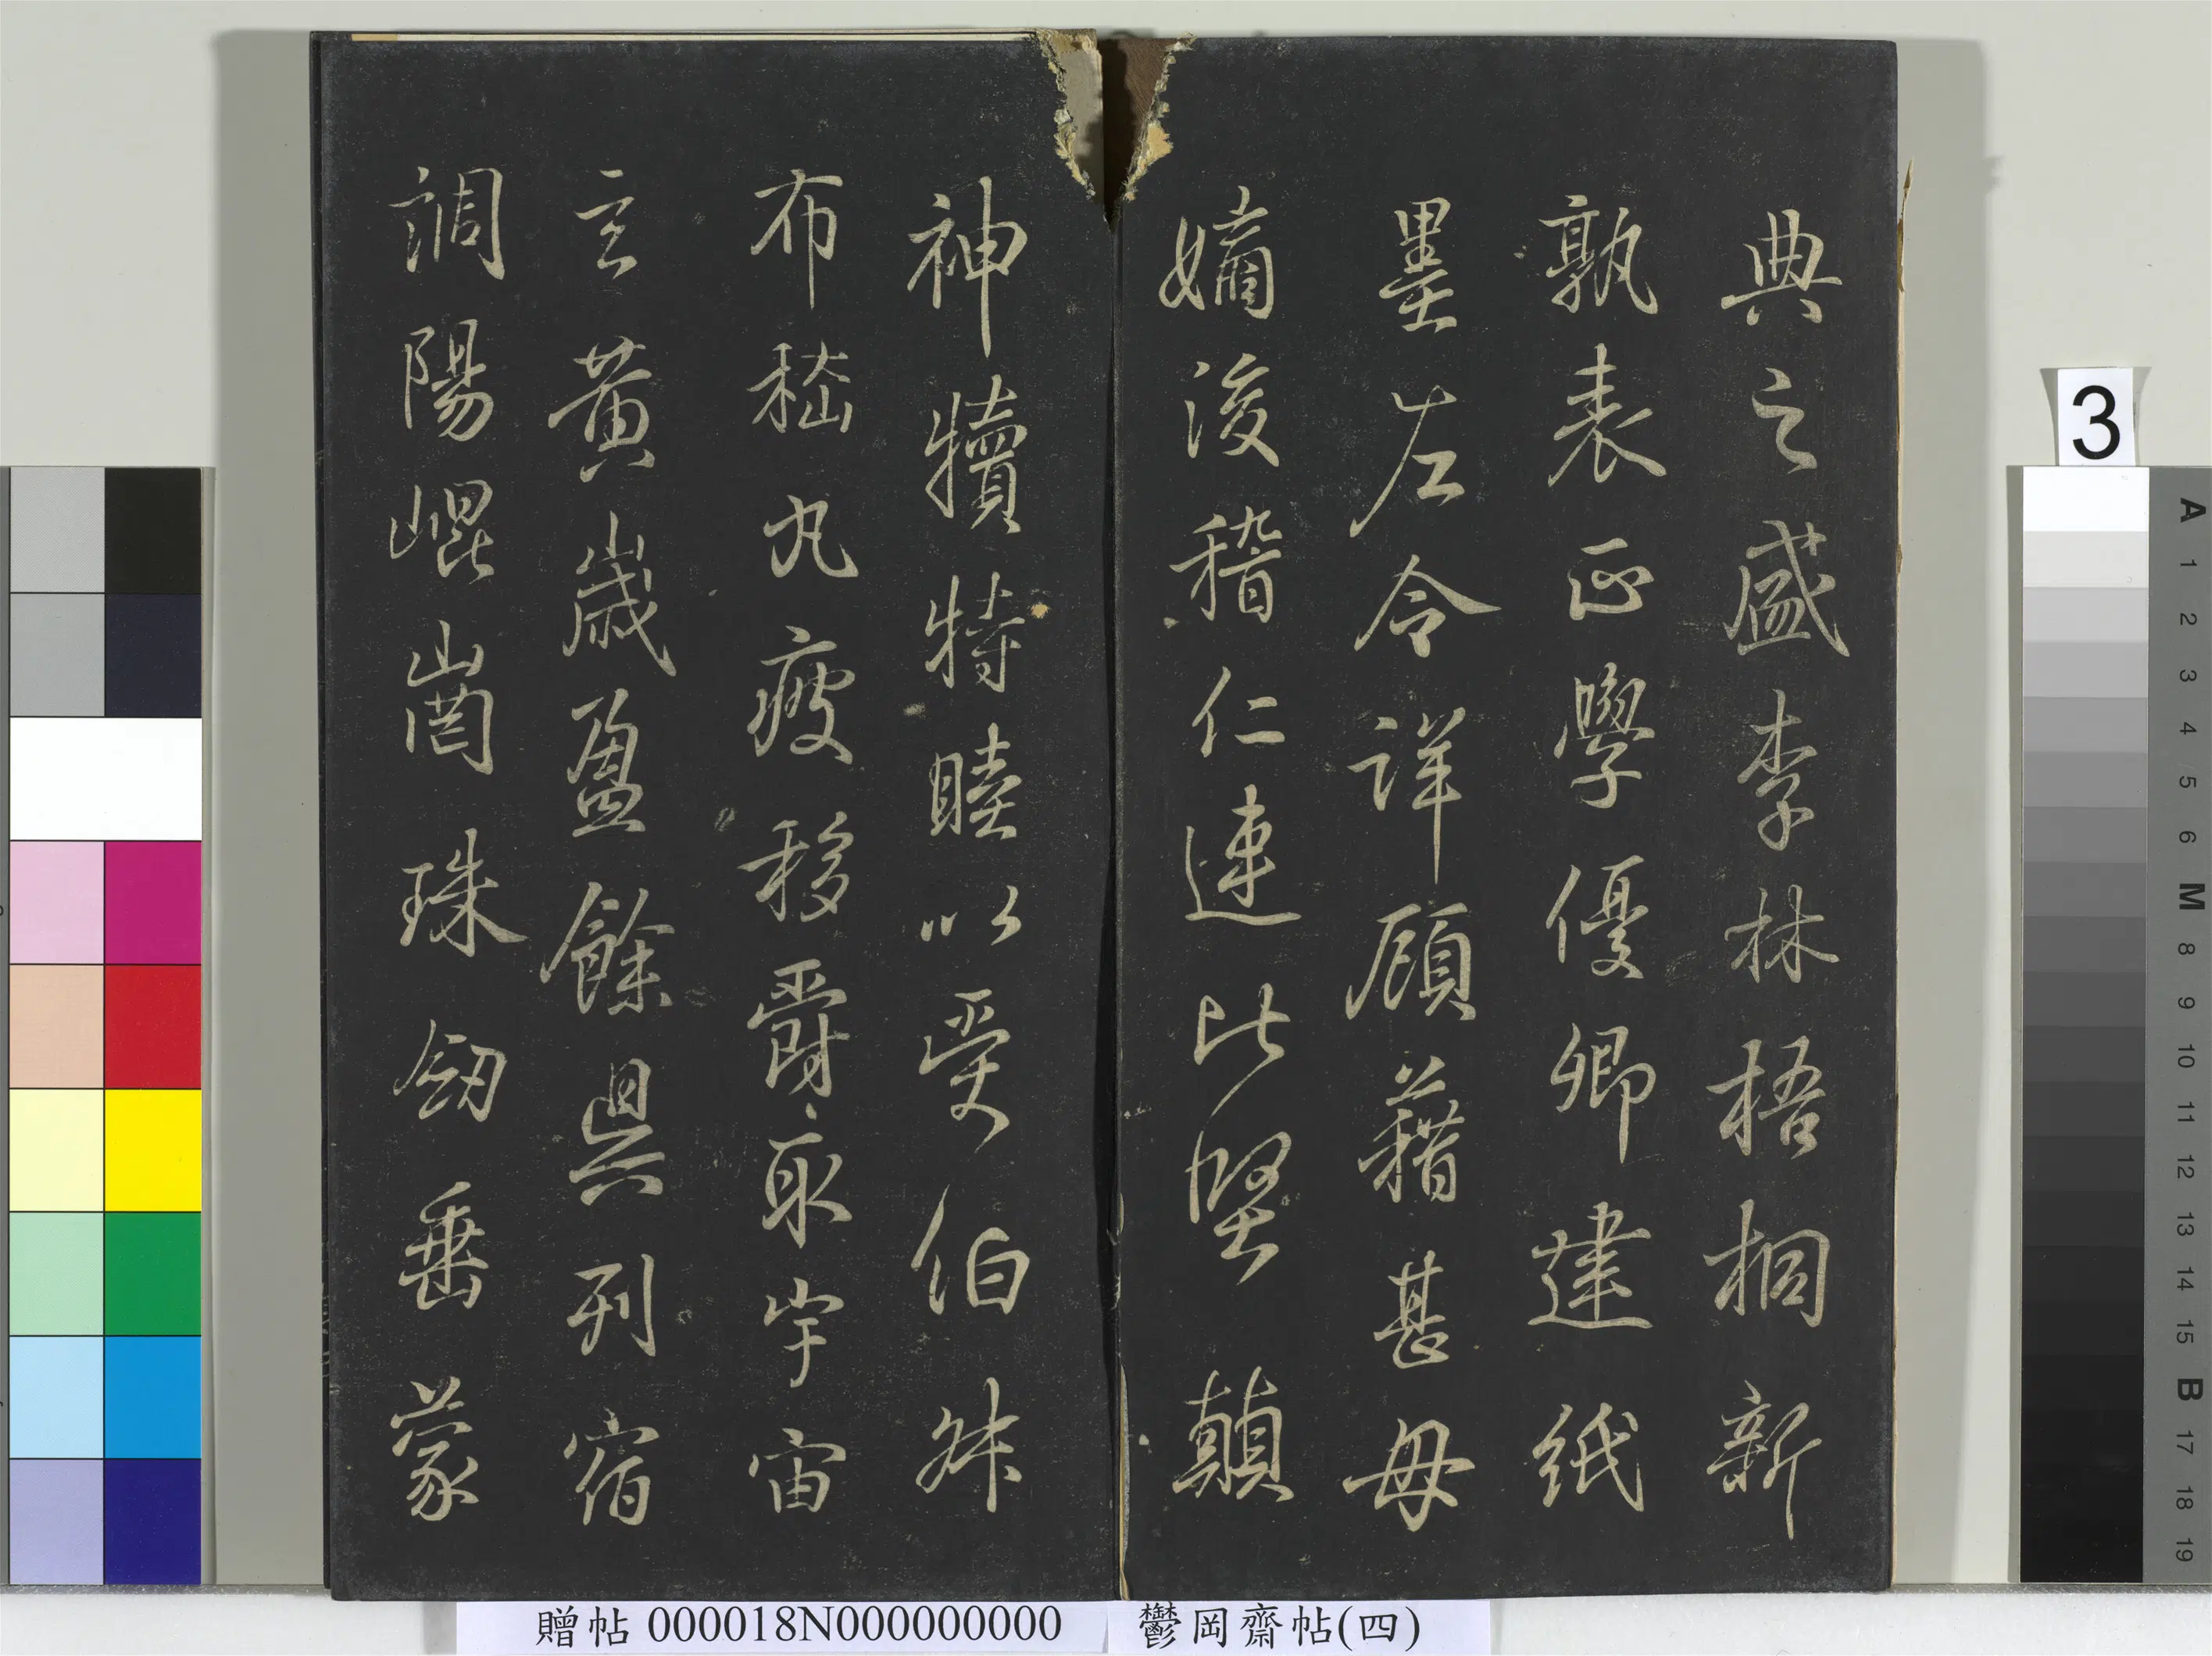 典之盛李林梧桐新
孰表正學優卿建紙
墨左令詳顧藉甚毋
嫡浚稽仁連此堅顛
神犢特睦以受伯叔
布嵇丸疲移爵取宇宙
玄黄歲盈餘具列宿
調陽崐崗珠劒垂蒙
贈帖 000018N000000000 鬱岡齋帖(四)
3
A 1 2 3 4 5 6 M 8 9 10 11 12 13 14 15 B 17 18 19